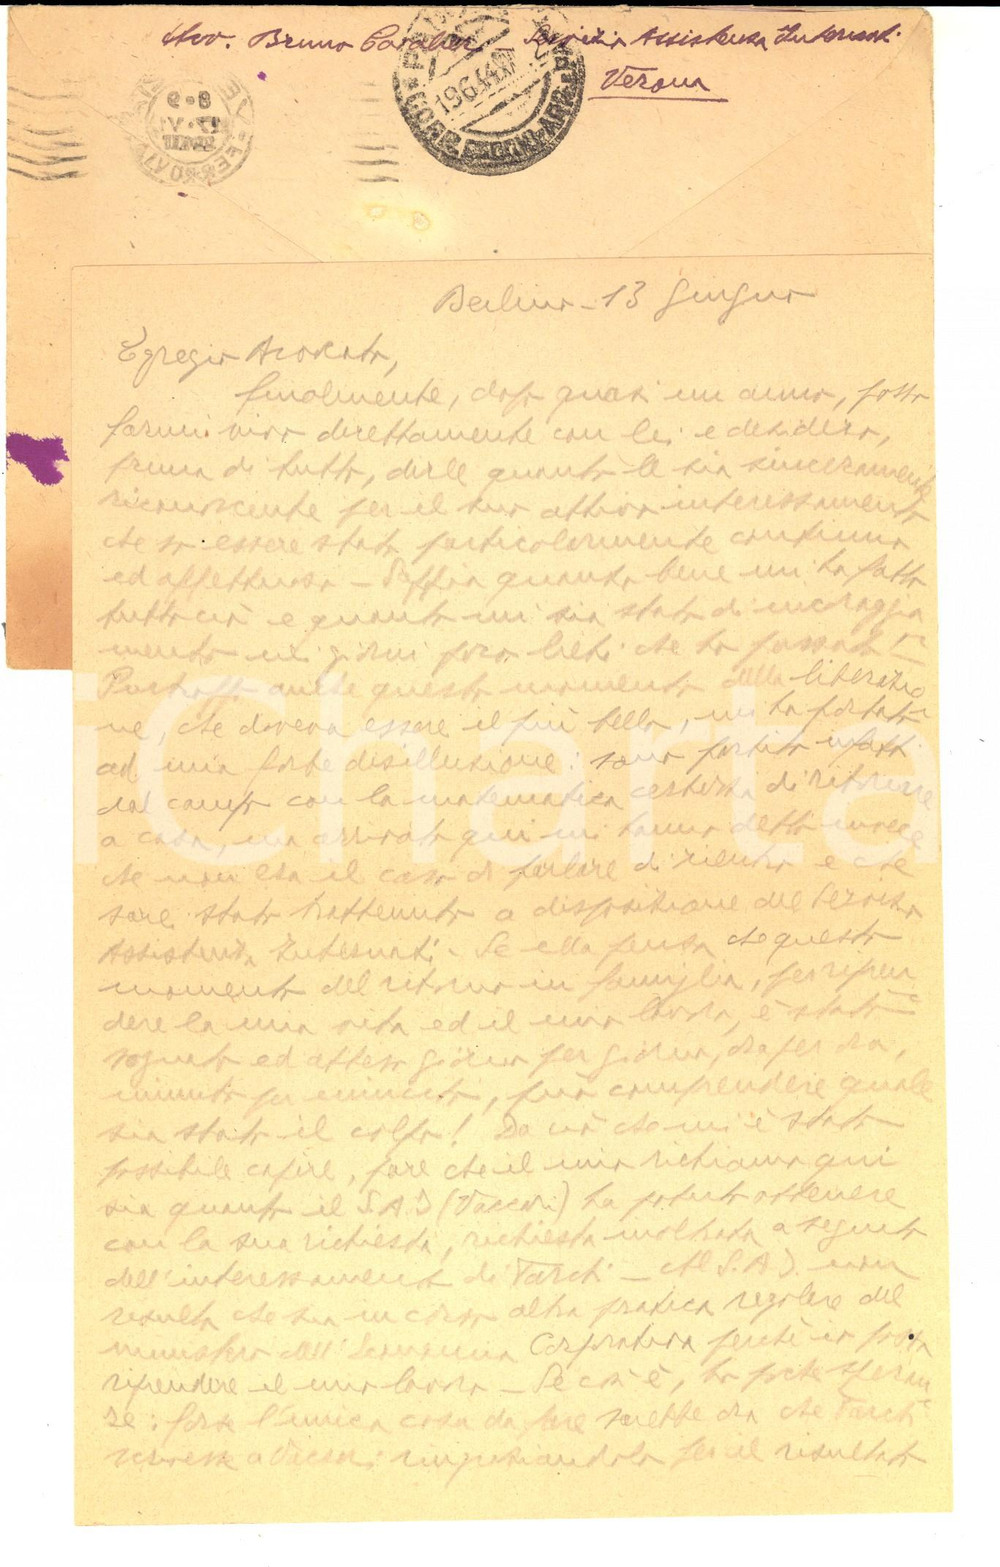 Avv. Bruno Cavalieri – Servizio Assistenza Internati
Verona
19.6.44
Berlino - 13 giugno
Egregio Avvocato,
finalmente, dopo quasi un anno, posso
farmi vivo direttamente con lei e desidero,
prima di tutto, dirle quanto le sia sinceramente
riconoscente per il suo attivo interessamento
che so essere stato particolarmente continuo
ed affettuoso – Sappia quanto bene mi ha fatto
tutto ciò e quanto mi sia stato di incoraggia
mento nei giorni poco lieti che ho passati –
Purtroppo anche questo momento della liberazio
ne, che doveva essere il più bello, mi ha portato
ad una forte disillusione: sono partito infatti
dal campo con la matematica certezza di ritornare
a casa, ma arrivato qui mi hanno detto invece
che non era il caso di parlare di rientro e che
sarei stato trattenuto a disposizione del Servizio
Assistenza Internati. – Se ella pensa che questo
momento del ritorno in famiglia, per ripren
dere la mia vita ed il mio lavoro, è stato
sognato ed atteso giorno per giorno, ora per ora,
minuto per minuto, può comprendere quale
sia stato il colpo! Da ciò che mi è stato
possibile capire, pare che il mio richiamo qui
sia quanto il S.A.I (Vaccari) ha potuto ottenere
con la sua richiesta, richiesta inoltrata a seguito
dell'interessamento di Tarchi – Al S.A.I. non
risulta che sia in corso altra pratica regolare del
ministero dell'Economia Corporativa perchè io possa
riprendere il mio lavoro – Se così è, ho poche speran
ze: forse l'unica cosa da fare sarebbe ora che Tarchi
scrivesse a Vaccari ringraziandolo per il risultato
iCharta